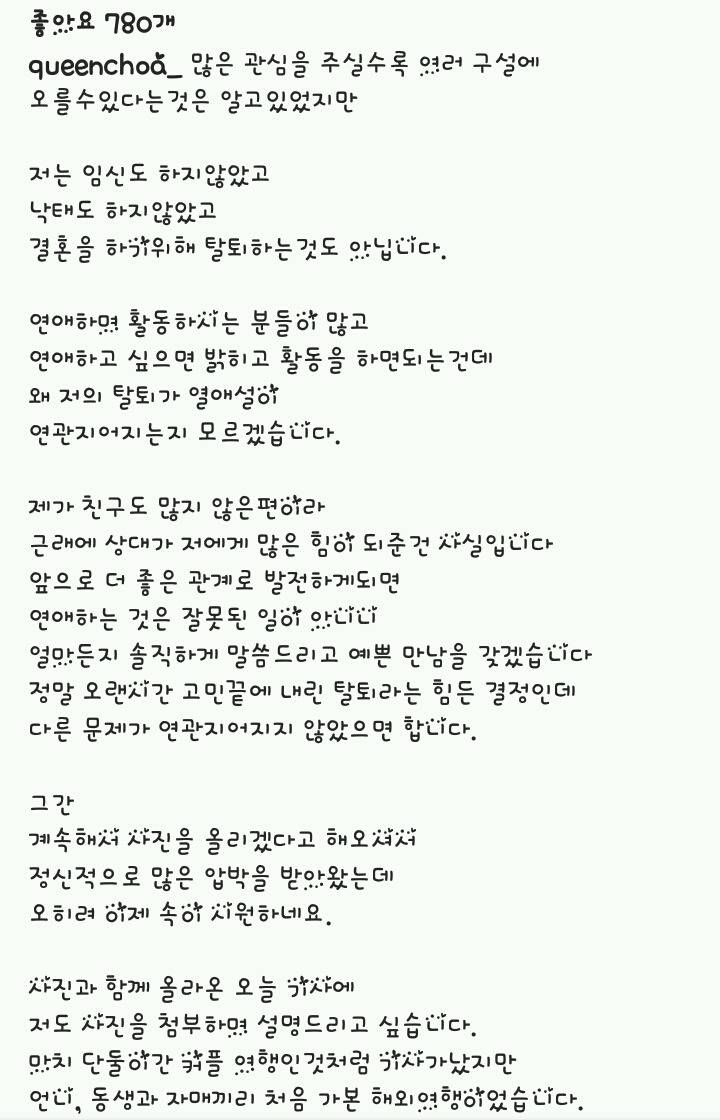 좋았요 780개
queenchoa_ 많은 관심을 주실수록 여러 구설에
오를수있다는것은 알고있었지만
저는 임신도 하지않았고
낙태도 하지않았고
결혼을 하기위해 탈퇴하는것도 아닙니다.
연애하며 활동하시는 분들이 많고
연애하고 싶으면 밝히고 활동을 하면되는건데
왜 저의 탈퇴가 열애설이
연관지어지는지 모르겠습니다.
제가 친구도 많지 않은편이라
근래에 상대가 저에게 많은 힘이 되준건 사실입니다
앞으로 더 좋은 관계로 발전하게되면
연애하는 것은 잘못된 일이 아니니
얼마든지 솔직하게 말씀드리고 예쁜 만남을 갖겠습니다
정말 오랜시간 고민끝에 내린 탈퇴라는 힘든 결정인데
다른 문제가 연관지어지지 않았으면 합니다.
그간
계속해서 사진을 올리겠다고 해오셔서
정신적으로 많은 압박을 받아왔는데
오히려 이제 속이 시원하네요.
사진과 함께 올라온 오늘 기사에
저도 사진을 첨부하며 설명드리고 싶습니다.
마치 단둘이간 커플 여행인것처럼 기사가났지만
언니, 동생과 자매끼리 처음 가본 해외여행이었습니다.